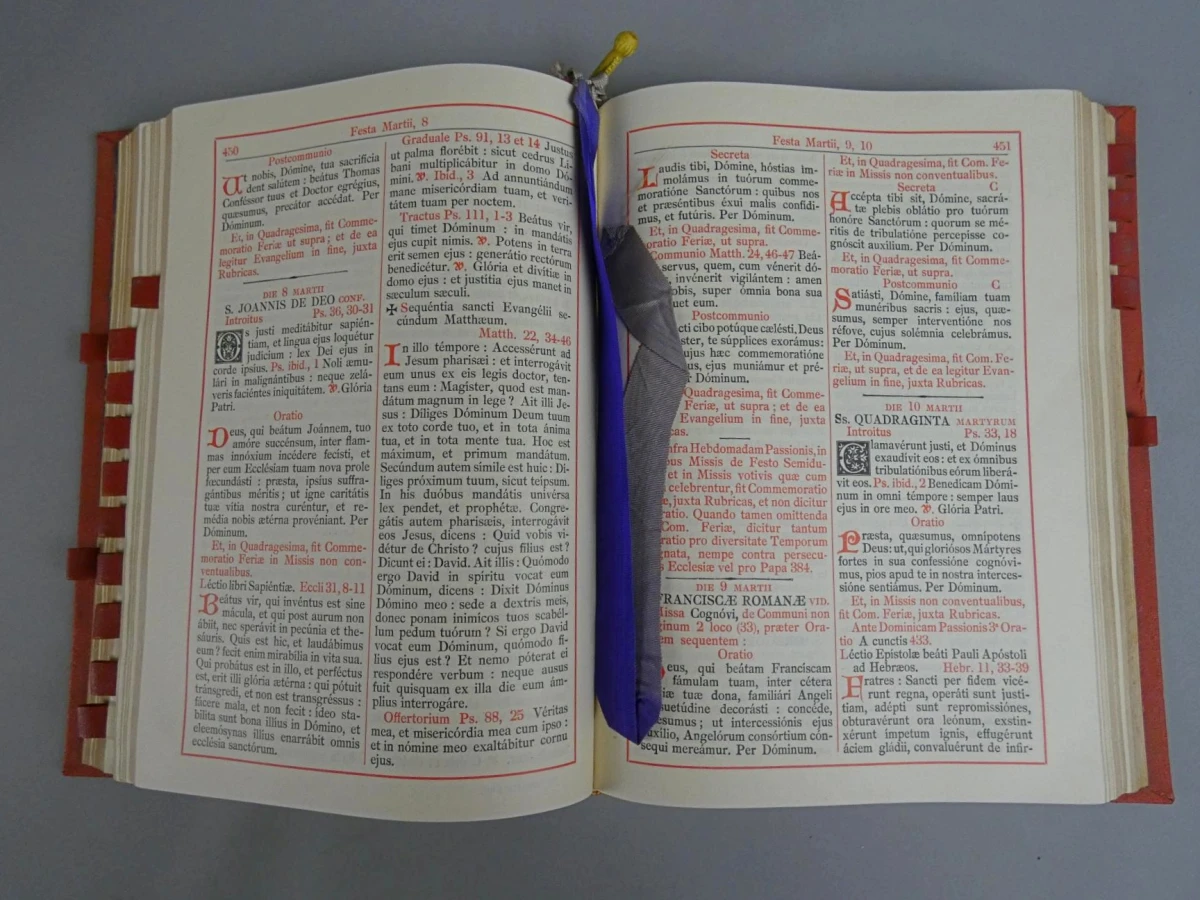 Festa Martii, 8
450
Postcommunio
Ut nobis, Dómine, tua sacrifícia
dent salútem : beátus Thomas
Conféssor tuus et Doctor egrégius,
quǽsumus, precátor accédat. Per
Dóminum.
Et, in Quadragesima, fit Comme-
moratio Feriæ ut supra ; et de ea
legitur Evangelium in fine, juxta
Rubricas.
DIE 8 MARTII
S. JOANNIS DE DEO CONF.
Introitus Ps. 36, 30-31
Os justi meditábitur sapién-
tiam, et lingua ejus loquétur
judícium : lex Dei ejus in
corde ipsíus. Ps. ibid., 1 Noli æmu-
lári in malignántibus : neque zelá-
veris faciéntes iniquitátem. ℣. Glória
Patri.
Oratio
Deus, qui beátum Joánnem, tuo
amóre succénsum, inter flam-
mas innóxium incédere fecísti, et
per eum Ecclésiam tuam nova prole
fœcundásti : præsta, ipsíus suffra-
gántibus méritis ; ut igne caritátis
tuæ vítia nostra curéntur, et re-
média nobis ætérna provéniant. Per
Dóminum.
Et, in Quadragesima, fit Comme-
moratio Feriæ in Missis non conven-
tualibus.
Léctio libri Sapiéntiæ. Eccli 31, 8-11
Beátus vir, qui invéntus est sine
mácula, et qui post aurum non
ábiit, nec sperávit in pecúnia et the-
sáuris. Quis est hic, et laudábimus
eum ? fecit enim mirabília in vita sua.
Qui probátus est in illo, et perféctus
est, erit illi glória ætérna : qui pótuit
tránsgredi, et non est transgréssus :
fácere mala, et non fecit : ídeo sta-
bilíta sunt bona illíus in Dómino, et
eleemósynas illíus enarrábit omnis
ecclésia sanctórum.
Graduale Ps. 91, 13 et 14 Justus
ut palma florébit : sicut cedrus Lí-
bani multiplicábitur in domo Dó-
mini. ℣. Ibid., 3 Ad annuntiándum
mane misericórdiam tuam, et veri-
tátem tuam per noctem.
Tractus Ps. 111, 1-3 Beátus vir,
qui timet Dóminum : in mandátis
ejus cupit nimis. ℣. Potens in terra
erit semen ejus : generátio rectórum
benedicétur. ℣. Glória et divítiæ in
domo ejus : et justítia ejus manet in
sǽculum sǽculi.
✠ Sequéntia sancti Evangélii se-
cúndum Matthǽum.
Matth. 22, 34-46
In illo témpore : Accessérunt ad
Jesum pharisǽi : et interrogávit
eum unus ex eis legis doctor, ten-
tans eum : Magíster, quod est man-
dátum magnum in lege ? Ait illi Je-
sus : Díliges Dóminum Deum tuum
ex toto corde tuo, et in tota ánima
tua, et in tota mente tua. Hoc est
máximum, et primum mandátum.
Secúndum autem símile est huic : Dí-
liges próximum tuum, sicut teípsum.
In his duóbus mandátis univérsa
lex pendet, et prophétæ. Congre-
gátis autem pharisǽis, interrogávit
eos Jesus, dicens : Quid vobis vi-
détur de Christo ? cujus fílius est ?
Dicunt ei : David. Ait illis : Quómodo
ergo David in spíritu vocat eum
Dóminum, dicens : Dixit Dóminus
Dómino meo : sede a dextris meis,
donec ponam inimícos tuos scabél-
lum pedum tuórum ? Si ergo David
vocat eum Dóminum, quómodo fí-
lius ejus est ? Et nemo póterat ei
respondére verbum : neque ausus
fuit quisquam ex illa die eum ám-
plius interrogáre.
Offertorium Ps. 88, 25 Véritas
mea, et misericórdia mea cum ipso :
et in nómine meo exaltábitur cornu
ejus.
Festa Martii, 9, 10
451
Secreta
Laudis tibi, Dómine, hóstias im-
molámus in tuórum comme-
moratióne Sanctórum : quibus nos
et præséntibus éxui malis confídi-
mus, et futúris. Per Dóminum.
Et, in Quadragesima, fit Comme-
oratio Feriæ, ut supra.
Communio Matth. 24, 46-47 Beá-
servus, quem, cum vénerit dó-
invénerit vigilántem : amen
obis, super ómnia bona sua
uet eum.
Postcommunio
cti cibo potúque cælésti, Deus
ster, te súpplices exorámus:
ujus hæc commemoratióne
ejus, muniámur et pré-
r Dóminum.
Quadragesima, fit Comme-
Feriæ, ut supra ; et de ea
Evangelium in fine, juxta
cas.
nfra Hebdomadam Passionis, in
bus Missis de Festo Semidu-
et in Missis votivis quæ cum
celebrentur, fit Commemoratio
e, juxta Rubricas, et non dicitur
oratio. Quando tamen omittenda
Com. Feriæ, dicitur tantum
ratio pro diversitate Temporum
gnata, nempe contra persecu-
s Ecclesiæ vel pro Papa 384.
DIE 9 MARTII
FRANCISCÆ ROMANÆ VID.
Missa Cognóvi, de Communi non
ginum 2 loco (33), præter Ora-
em sequentem :
Oratio
eus, qui beátam Francíscam
fámulam tuam, inter cétera
iæ tuæ dona, familiári Angeli
suetúdine decorásti : concéde,
esumus ; ut intercessiónis ejus
uxílio, Angelórum consórtium cón-
sequi mereámur. Per Dóminum.
Et, in Quadragesima, fit Com. Fe-
riæ in Missis non conventualibus.
Secreta C
Accépta tibi sit, Dómine, sacrá-
tæ plebis oblátio pro tuórum
honóre Sanctórum : quorum se mé-
ritis de tribulatióne percepísse co-
gnóscit auxílium. Per Dóminum.
Et, in Quadragesima, fit Comme-
moratio Feriæ, ut supra.
Postcommunio C
Satiásti, Dómine, famíliam tuam
munéribus sacris : ejus, quǽ-
sumus, semper interventióne nos
réfove, cujus solémnia celebrámus.
Per Dóminum.
Et, in Quadragesima, fit Com. Fe-
riæ, ut supra, et de ea legitur Evan-
gelium in fine, juxta Rubricas.
DIE 10 MARTII
Ss. QUADRAGINTA MARTYRUM
Introitus Ps. 33, 18
Clamavérunt justi, et Dóminus
exaudívit eos : et ex ómnibus
tribulatiónibus eórum liberá-
vit eos. Ps. ibid., 2 Benedícam Dómi-
num in omni témpore : semper laus
ejus in ore meo. ℣. Glória Patri.
Oratio
Præsta, quǽsumus, omnípotens
Deus : ut, qui gloriósos Mártyres
fortes in sua confessióne cognóvi-
mus, pios apud te in nostra interces-
sióne sentiámus. Per Dóminum.
Et, in Missis non conventualibus,
fit Com. Feriæ, juxta Rubricas.
Ante Dominicam Passionis 3ª Ora-
tio A cunctis 433.
Léctio Epístolæ beáti Pauli Apóstoli
ad Hebrǽos. Hebr. 11, 33-39
Fratres : Sancti per fidem vicé-
runt regna, operáti sunt justí-
tiam, adépti sunt repromissiónes,
obturavérunt ora leónum, exstin-
xérunt ímpetum ignis, effugérunt
áciem gládii, convaluérunt de infir-